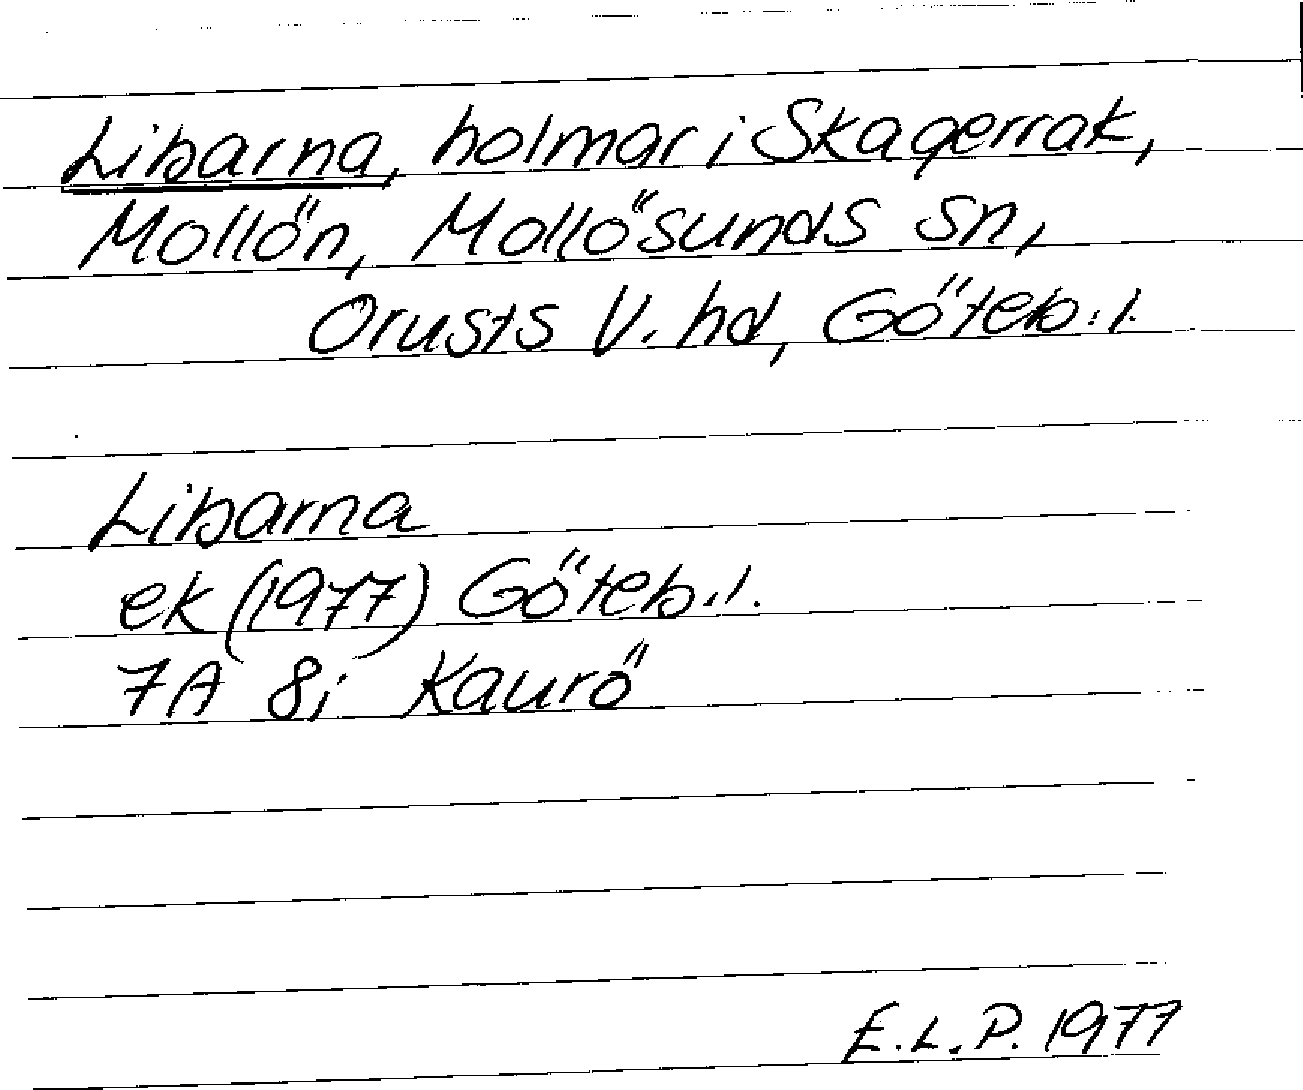 Libarna, holmar i Skagerrak,
Mollön, Mollösunds sn,
Orusts V. hd, Göteb.l.
Libarna
ek (1977) Göteb.l.
7A 8j Kaurö
E.L.P. 1977